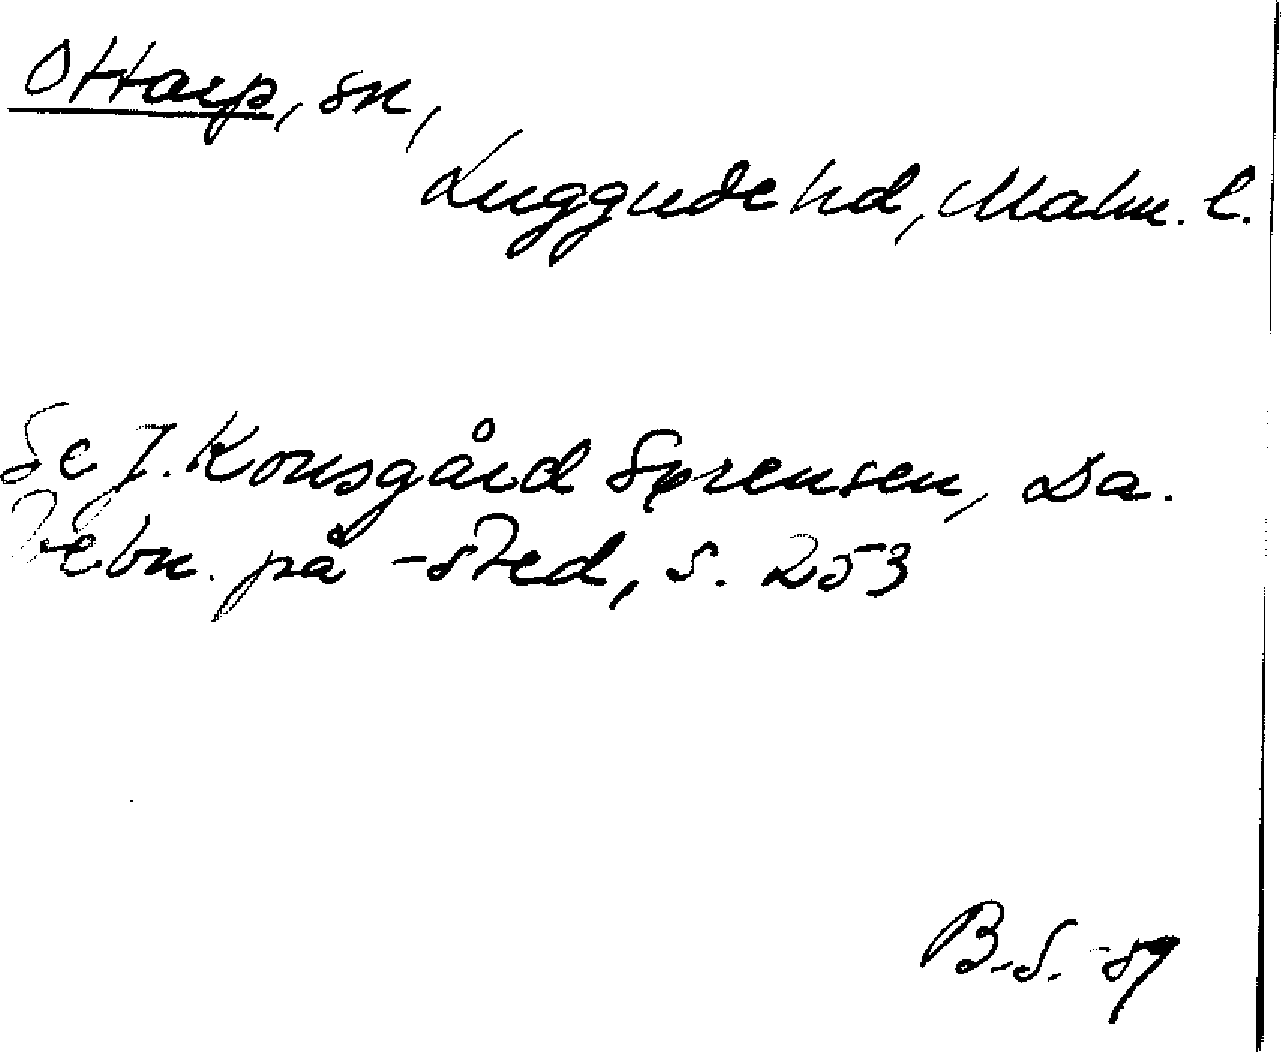 Ottarp, sn,
Luggude hd, Malm. l.
Se J. Kousgård Sørensen, Da.
bebn. på -sted, s. 253
B.S. -89